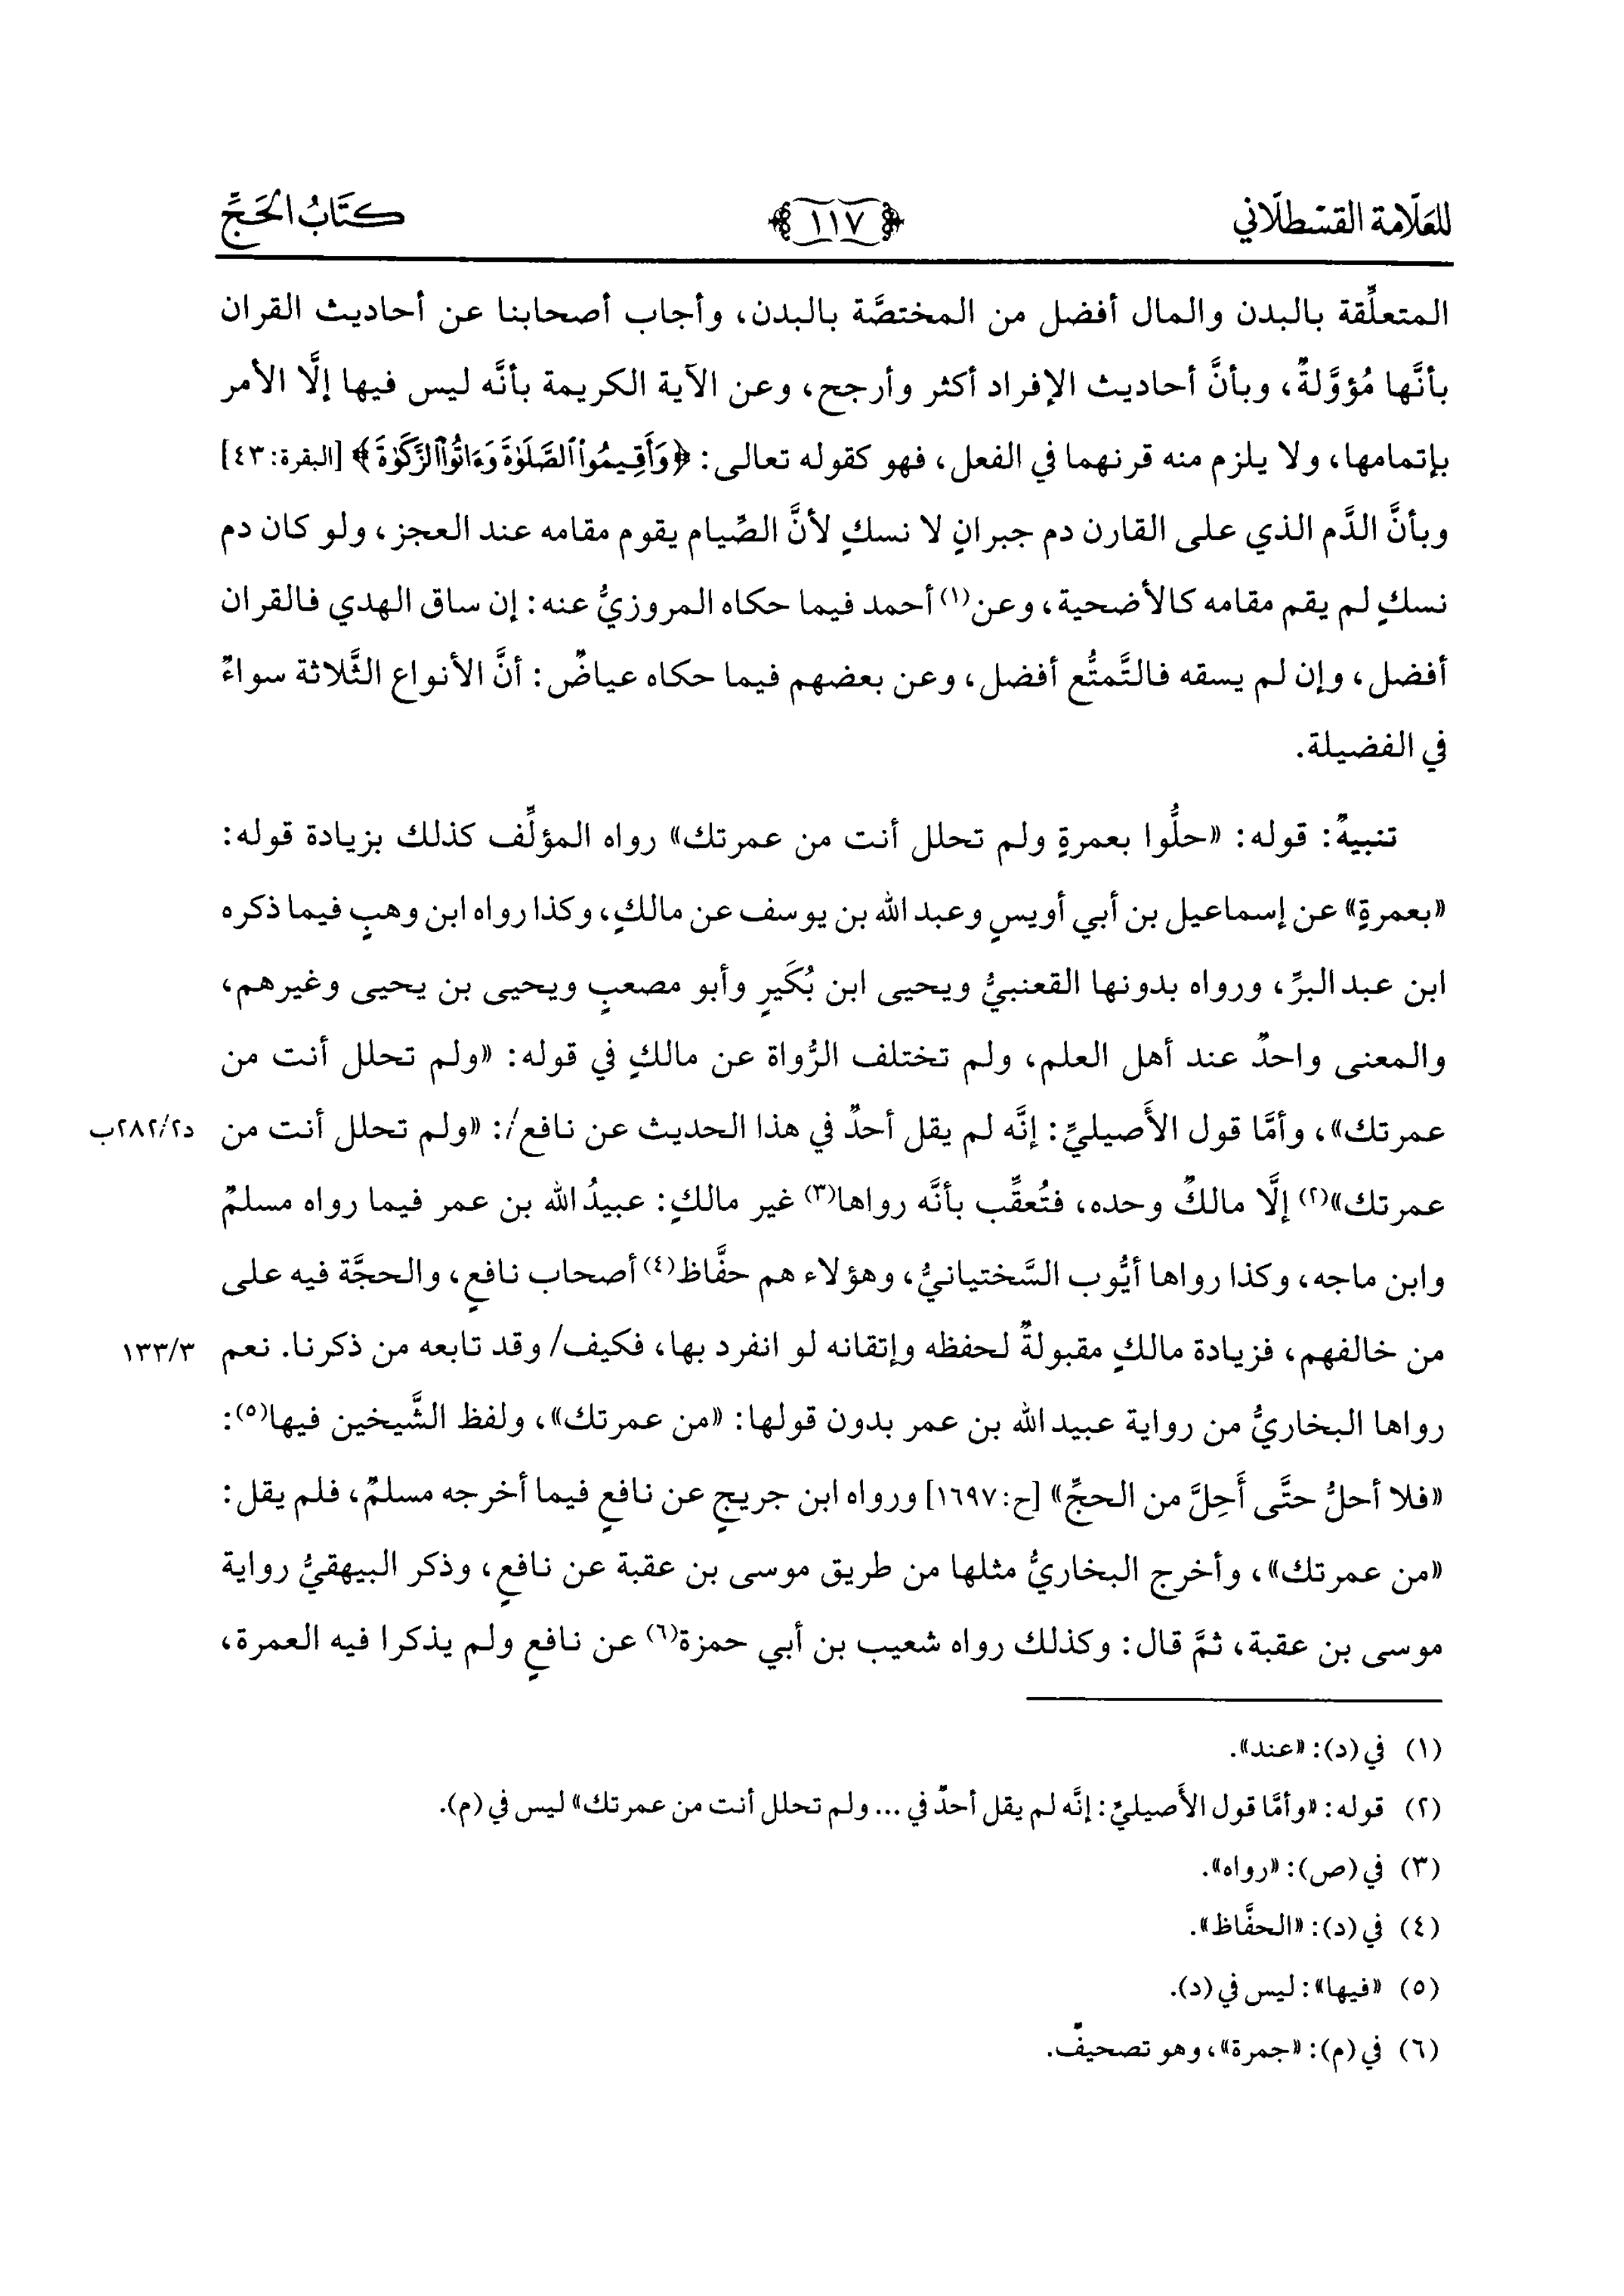 للعلّامة القسطلّاني ﴿١١٧﴾ كتَابُ الحَجِّ
المتعلِّقة بالبدن والمال أفضل من المختصَّة بالبدن، وأجاب أصحابنا عن أحاديث القران
بأنَّها مُؤوَّلةٌ، وبأنَّ أحاديث الإفراد أكثر وأرجح، وعن الآية الكريمة بأنَّه ليس فيها إلَّا الأمر
بإتمامها، ولا يلزم منه قرنهما في الفعل، فهو كقوله تعالى: ﴿وَأَقِيمُوا۟ ٱلصَّلَوٰةَ وَءَاتُوا۟ ٱلزَّكَوٰةَ﴾ [البقرة: ٤٣]
وبأنَّ الدَّم الذي على القارن دم جبرانٍ لا نسكٍ لأنَّ الصِّيام يقوم مقامه عند العجز، ولو كان دم
نسكٍ لم يقم مقامه كالأضحية، وعن(١) أحمد فيما حكاه المروزيُّ عنه: إن ساق الهدي فالقران
أفضل، وإن لم يسقه فالتَّمتُّع أفضل، وعن بعضهم فيما حكاه عياضٌ: أنَّ الأنواع الثَّلاثة سواءٌ
في الفضيلة.
تنبيهٌ: قوله: «حلُّوا بعمرةٍ ولم تحلل أنت من عمرتك» رواه المؤلِّف كذلك بزيادة قوله:
«بعمرةٍ» عن إسماعيل بن أبي أويسٍ وعبد الله بن يوسف عن مالكٍ، وكذا رواه ابن وهبٍ فيما ذكره
ابن عبد البرِّ، ورواه بدونها القعنبيُّ ويحيى ابن بُكَيرٍ وأبو مصعبٍ ويحيى بن يحيى وغيرهم،
والمعنى واحدٌ عند أهل العلم، ولم تختلف الرُّواة عن مالكٍ في قوله: «ولم تحلل أنت من
عمرتك»، وأمَّا قول الأَصيليِّ: إنَّه لم يقل أحدٌ في هذا الحديث عن نافع/: «ولم تحلل أنت من د٢٨٢/٢ب
عمرتك»(٢) إلَّا مالكٌ وحده، فتُعقِّب بأنَّه رواها(٣) غير مالكٍ: عبيدُ الله بن عمر فيما رواه مسلمٌ
وابن ماجه، وكذا رواها أيُّوب السَّختيانيُّ، وهؤلاء هم حفَّاظ(٤) أصحاب نافعٍ، والحجَّة فيه على
من خالفهم، فزيادة مالكٍ مقبولةٌ لحفظه وإتقانه لو انفرد بها، فكيف/ وقد تابعه من ذكرنا. نعم ١٣٣/٣
رواها البخاريُّ من رواية عبيد الله بن عمر بدون قولها: «من عمرتك»، ولفظ الشَّيخين فيها(٥):
«فلا أحلُّ حتَّى أَحِلَّ من الحجِّ» [ح: ١٦٩٧] ورواه ابن جريجٍ عن نافعٍ فيما أخرجه مسلمٌ، فلم يقل:
«من عمرتك»، وأخرج البخاريُّ مثلها من طريق موسى بن عقبة عن نافعٍ، وذكر البيهقيُّ رواية
موسى بن عقبة، ثمَّ قال: وكذلك رواه شعيب بن أبي حمزة(٦) عن نافعٍ ولم يذكرا فيه العمرة،
(١) في (د): «عند».
(٢) قوله: «وأمَّا قول الأَصيليِّ: إنَّه لم يقل أحدٌ في ... ولم تحلل أنت من عمرتك» ليس في (م).
(٣) في (ص): «رواه».
(٤) في (د): «الحفَّاظ».
(٥) «فيها»: ليس في (د).
(٦) في (م): «جمرة»، وهو تصحيفٌ.